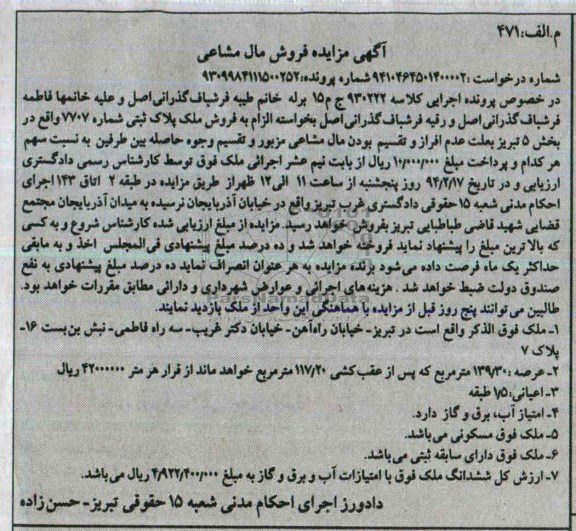 م.الف:۴۷۱
آگهی مزایده فروش مال مشاعی
شماره درخواست :۹۴۱۰۴۶۴۵۰۱۴۰۰۰۰۲ شماره پرونده:۹۳۰۹۹۸۴۱۱۱۵۰۰۲۵۲
در خصوص پرونده اجرایی کلاسه ۹۳۰۲۲۲ ج م۱۵ برله خانم طیبه فرشباف‌گذرانی‌اصل و علیه خانمها فاطمه
فرشباف‌گذرانی‌اصل و رقیه فرشباف‌گذرانی‌اصل بخواسته الزام به فروش ملک پلاک ثبتی شماره ۷۷۰۷ واقع در
بخش ۵ تبریز بعلت عدم افراز و تقسیم بودن مال مشاعی مزبور و تقسیم وجوه حاصله بین طرفین به نسبت سهم
هر کدام و پرداخت مبلغ ۱۰/۰۰۰/۰۰۰ ریال از بابت نیم عشر اجرائی ملک فوق توسط کارشناس رسمی دادگستری
ارزیابی و در تاریخ ۹۴/۲/۱۷ روز پنجشنبه از ساعت ۱۱ الی۱۲ ظهر از طریق مزایده در طبقه ۲ اتاق ۱۴۳ اجرای
احکام مدنی شعبه ۱۵ حقوقی دادگستری غرب تبریز واقع در خیابان آذربایجان نرسیده به میدان آذربایجان مجتمع
قضایی شهید قاضی طباطبایی تبریز بفروش خواهد رسید. مزایده از مبلغ ارزیابی شده کارشناس شروع و به کسی
که بالا ترین مبلغ را پیشنهاد نماید فروخته خواهد شد و ده درصد مبلغ پیشنهادی فی‌المجلس اخذ و به مابقی
حداکثر یک ماه فرصت داده می‌شود برنده مزایده به هر عنوان انصراف نماید ده درصد مبلغ پیشنهادی به نفع
صندوق دولت ضبط خواهد شد . هزینه‌های اجرائی و عوارض شهرداری و دارائی مطابق مقررات خواهد بود.
طالبین می‌توانند پنج روز قبل از مزایده با هماهنگی این واحد از ملک بازدید نمایند.
۱- ملک فوق الذکر واقع است در تبریز- خیابان راه‌آهن- خیابان دکتر غریب- سه راه فاطمی- نبش بن‌بست ۱۶-
پلاک ۷
۲- عرصه :۱۳۹/۳۰ مترمربع که پس از عقب‌کشی ۱۱۷/۲۰ مترمربع خواهد ماند از قرار هر متر ۴۲۰۰۰۰۰۰ ریال
۳- اعیانی:۱/۵ طبقه
۴- امتیاز آب، برق و گاز دارد.
۵- ملک فوق مسکونی می‌باشد.
۶- ملک فوق دارای سابقه ثبتی می‌باشد.
۷- ارزش کل ششدانگ ملک فوق با امتیازات آب و برق و گاز به مبلغ ۴/۹۲۲/۴۰۰/۰۰۰ ریال می‌باشد.
دادورز اجرای احکام مدنی شعبه ۱۵ حقوقی تبریز- حسن‌زاده